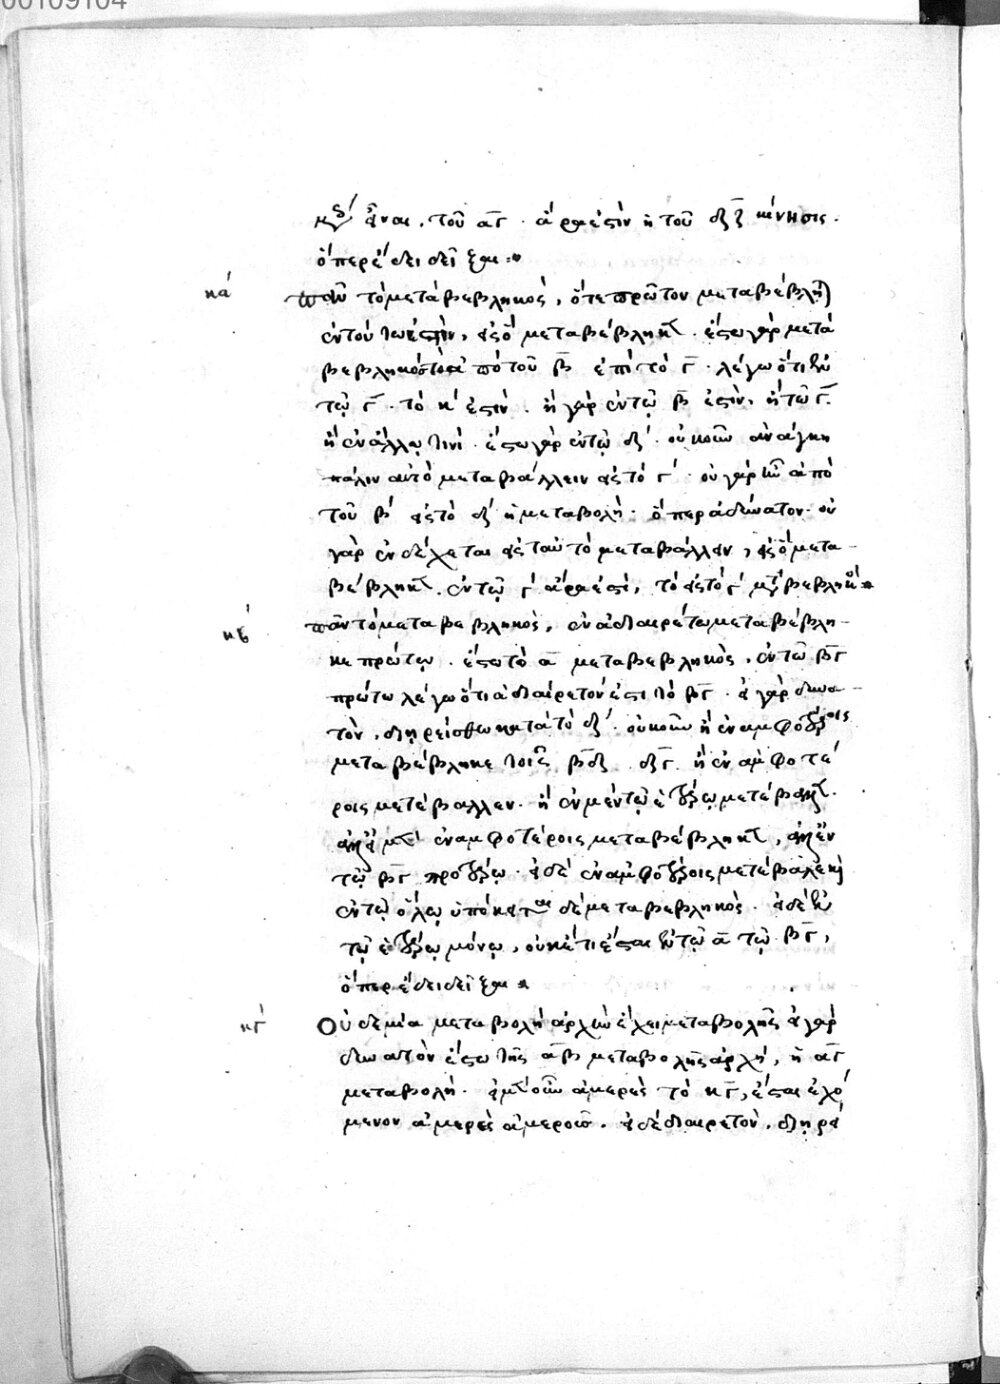 00109104
εἶναι. τοῦ α̅γ̅. ἅμα ἐστὶν ἡ τοῦ δ̅ζ̅ κίνησις.
ὅπερ ἔδει δεῖξαι
κα´ πᾶν τὸ μεταβεβληκὸς, ὅτε πρῶτον μεταβέβληται
ἐν τούτω ἐστὶν, εἰς ὃ μεταβέβληκε. ἔστω γὰρ μετα
βεβληκὸς τὸ α ἀπὸ τοῦ β̅ ἐπὶ τὸ γ̅. λέγω ὅτι ἐν
τῷ γ̅. τὸ ἐστίν. ἢ γὰρ ἐν τῷ β̅ ἐστὶν, ἢ τῶ γ̅.
ἢ ἐν ἄλλῳ τινί. ἔστω γὰρ ἐν τῷ δ´. οὐκοῦν ἀνάγκη
πάλιν αὐτὸ μεταβάλλειν εἰς τὸ γ´. οὐ γὰρ ἦν ἀπὸ
τοῦ β´ εἰς τὸ δ´ ἡ μεταβολή. ὅπερ ἀδύνατον. οὐ
γὰρ ἐνδέχεται εἰς ταὐτὸ μεταβάλλειν, εἰς ὃ μετα-
βέβληκε. ἐν τῷ γ´ ἄρα ἐστὶ, τὸ εἰς τὸ γ´ μεταβεβληκός
κβ´ πᾶν τὸ μεταβεβληκὸς, ἐν ἀδιαιρέτω μεταβέβλη-
κε πρώτῳ. ἔστω τὸ α̅ μεταβεβληκὸς, ἐν τῶ β̅γ̅
πρώτω λέγω ὅτι ἀδιαίρετόν ἐστι τὸ β̅γ̅. εἰ γὰρ δυνα-
τὸν, διῃρείσθω κατὰ τὸ δ´. οὐκοῦν ἢ ἐν ἀμφοτέροις
μεταβέβληκε τοῖς β̅δ̅ δ̅γ̅. ἢ ἐν ἀμφοτέ
ροις μετέβαλλεν. ἢ ἐν μὲν τῷ ἑτέρῳ μετέβαλλε.
ἀλλ᾽ εἰ μὲν ἐν ἀμφοτέροις μεταβέβληκε, ἀλλ᾽ ἐν
τῷ β̅γ̅ προτέρῳ. εἰ δὲ ἐν ἀμφοτέροις μετέβαλε κἂν
ἐν τῷ ὅλῳ ὑπόκειται δὲ μεταβεβληκός. εἰ δὲ ἐν
τῷ ἑτέρῳ μόνῳ, οὐκέτι ἔσται ἐν τῷ α̅ τῷ β̅γ̅,
ὅπερ ἔδει δεῖξαι
κγ´ Οὐδεμία μεταβολὴ ἀρχὴν ἔχει μεταβολῆς εἰ γὰρ
δυνατὸν ἔστω τῆς α̅β̅ μεταβολῆς ἀρχή, ἡ α̅γ̅
μεταβολή. εἰ μὲν οὖν ἀμερὲς τὸ κ̅γ̅, ἔσται ἐχό
μενον ἀμερὲς ἀμεροῦς. εἰ δὲ διαιρετὸν, διῃρή